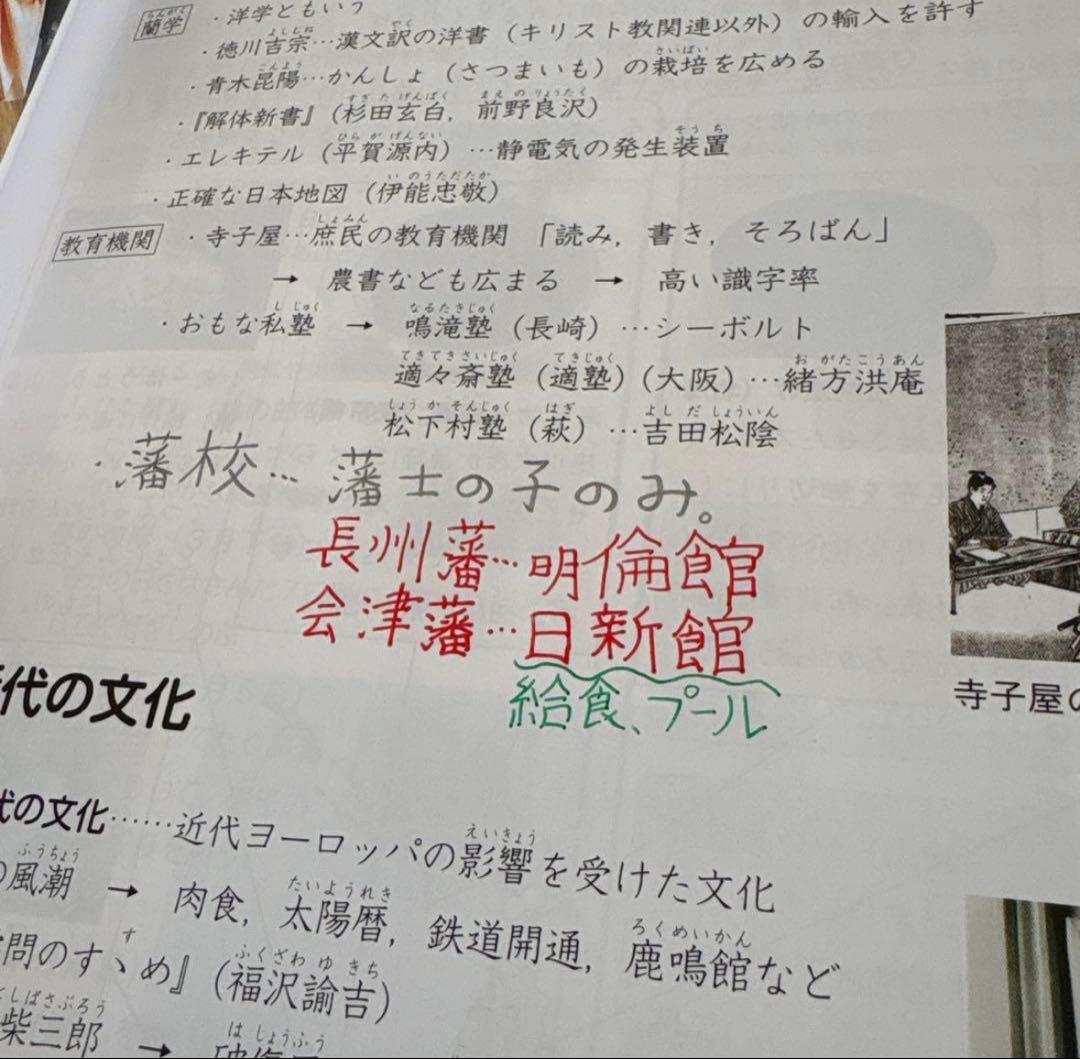 蘭学 ・洋学ともいう
・徳川吉宗…漢文訳の洋書（キリスト教関連以外）の輸入を許す
・青木昆陽…かんしょ（さつまいも）の栽培を広める
・『解体新書』（杉田玄白，前野良沢）
・エレキテル（平賀源内）…静電気の発生装置
・正確な日本地図（伊能忠敬）
教育機関 ・寺子屋…庶民の教育機関「読み，書き，そろばん」
→ 農書なども広まる → 高い識字率
・おもな私塾 → 鳴滝塾（長崎）…シーボルト
適々斎塾（適塾）（大阪）…緒方洪庵
松下村塾（萩）…吉田松陰
・藩校… 藩士の子のみ。
長州藩…明倫館
会津藩…日新館
給食、プール
寺子屋の
代の文化
代の文化……近代ヨーロッパの影響を受けた文化
の風潮 → 肉食，太陽暦，鉄道開通，鹿鳴館など
問のすゝめ』（福沢諭吉）
柴三郎 →